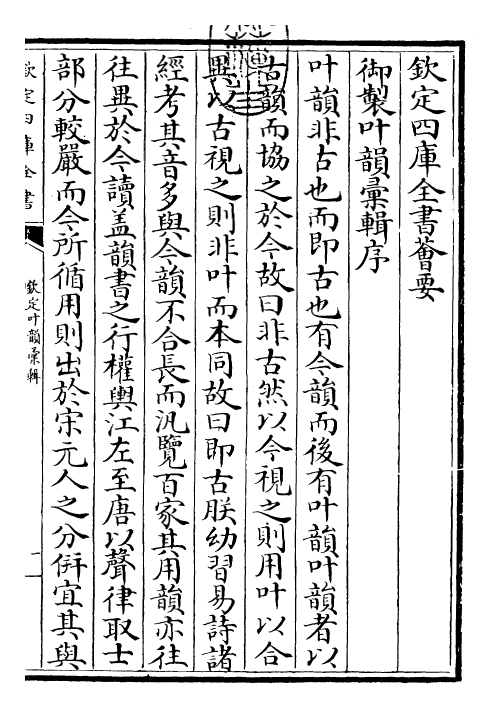 欽定四庫全書薈要
御製叶韻彚輯序
叶韻非古也而即古也有今韻而後有叶韻叶韻者以
古韻而協之於今故曰非古然以今視之則用叶以合
異以古視之則非叶而本同故曰即古朕幼習易詩諸
經考其音多與今韻不合長而汎覽百家其用韻亦往
往異於今讀盖韻書之行權輿江左至唐以聲律取士
部分較嚴而今所循用則出於宋元人之分倂宜其與
欽定四庫全書
欽定叶韻彚輯
一